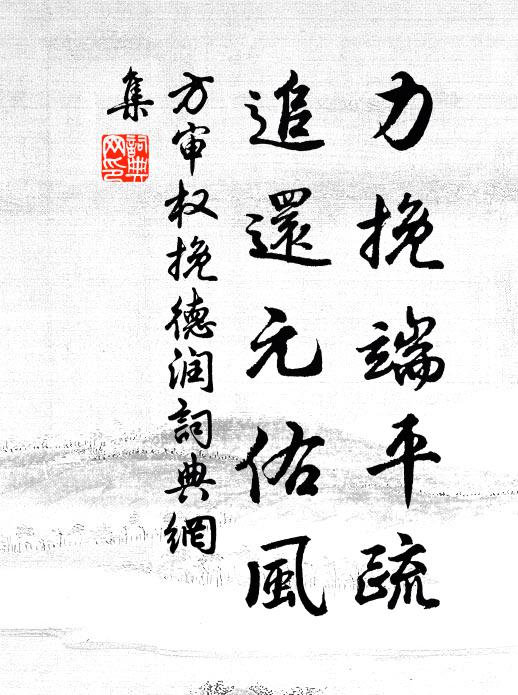 力挽端平疏
追還元佑風
方审权挽德润詞典網
集
詞典網印